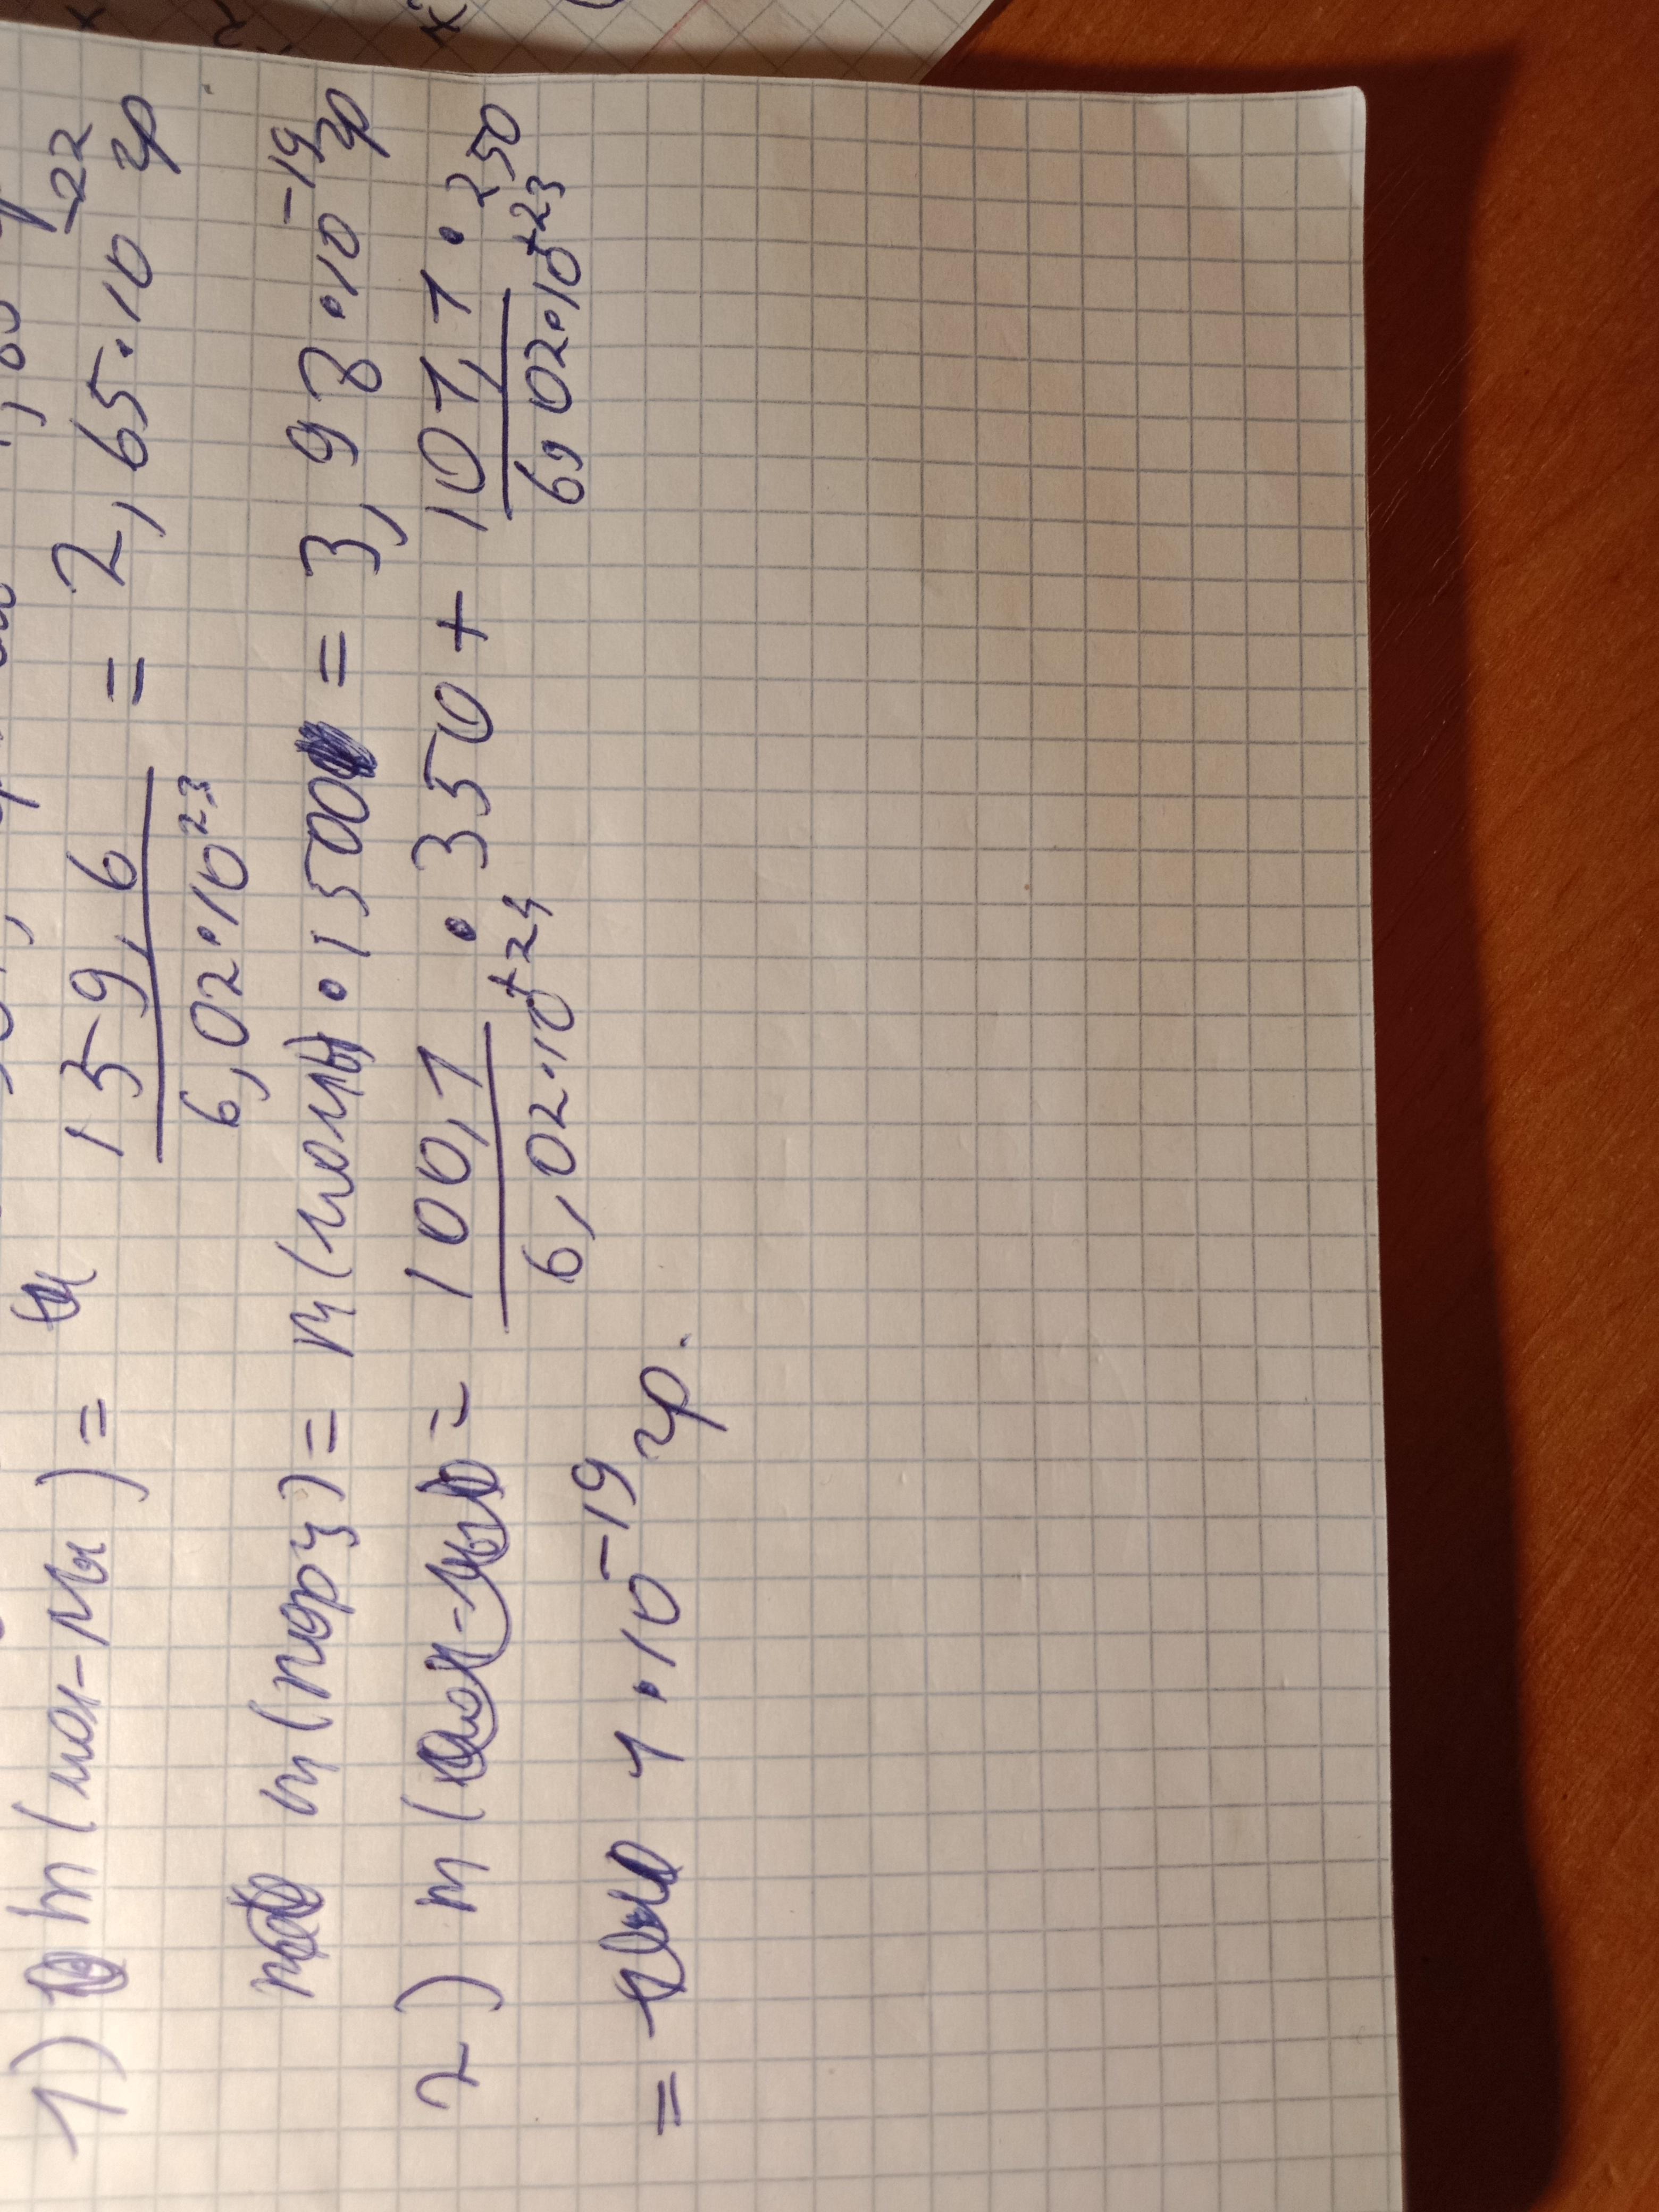 1) m(мол-лы) = 159,6 / 6,02·10²³ = 2,65·10⁻²² гр
m(порц) = m(молы)·1500 = 3,98·10⁻¹⁹ гр
2) m( = 100,1 / 6,02·10⁺²³ · 350 + 101,1 / 6,02·10⁺²³ · 250
= 1·10⁻¹⁹ гр.